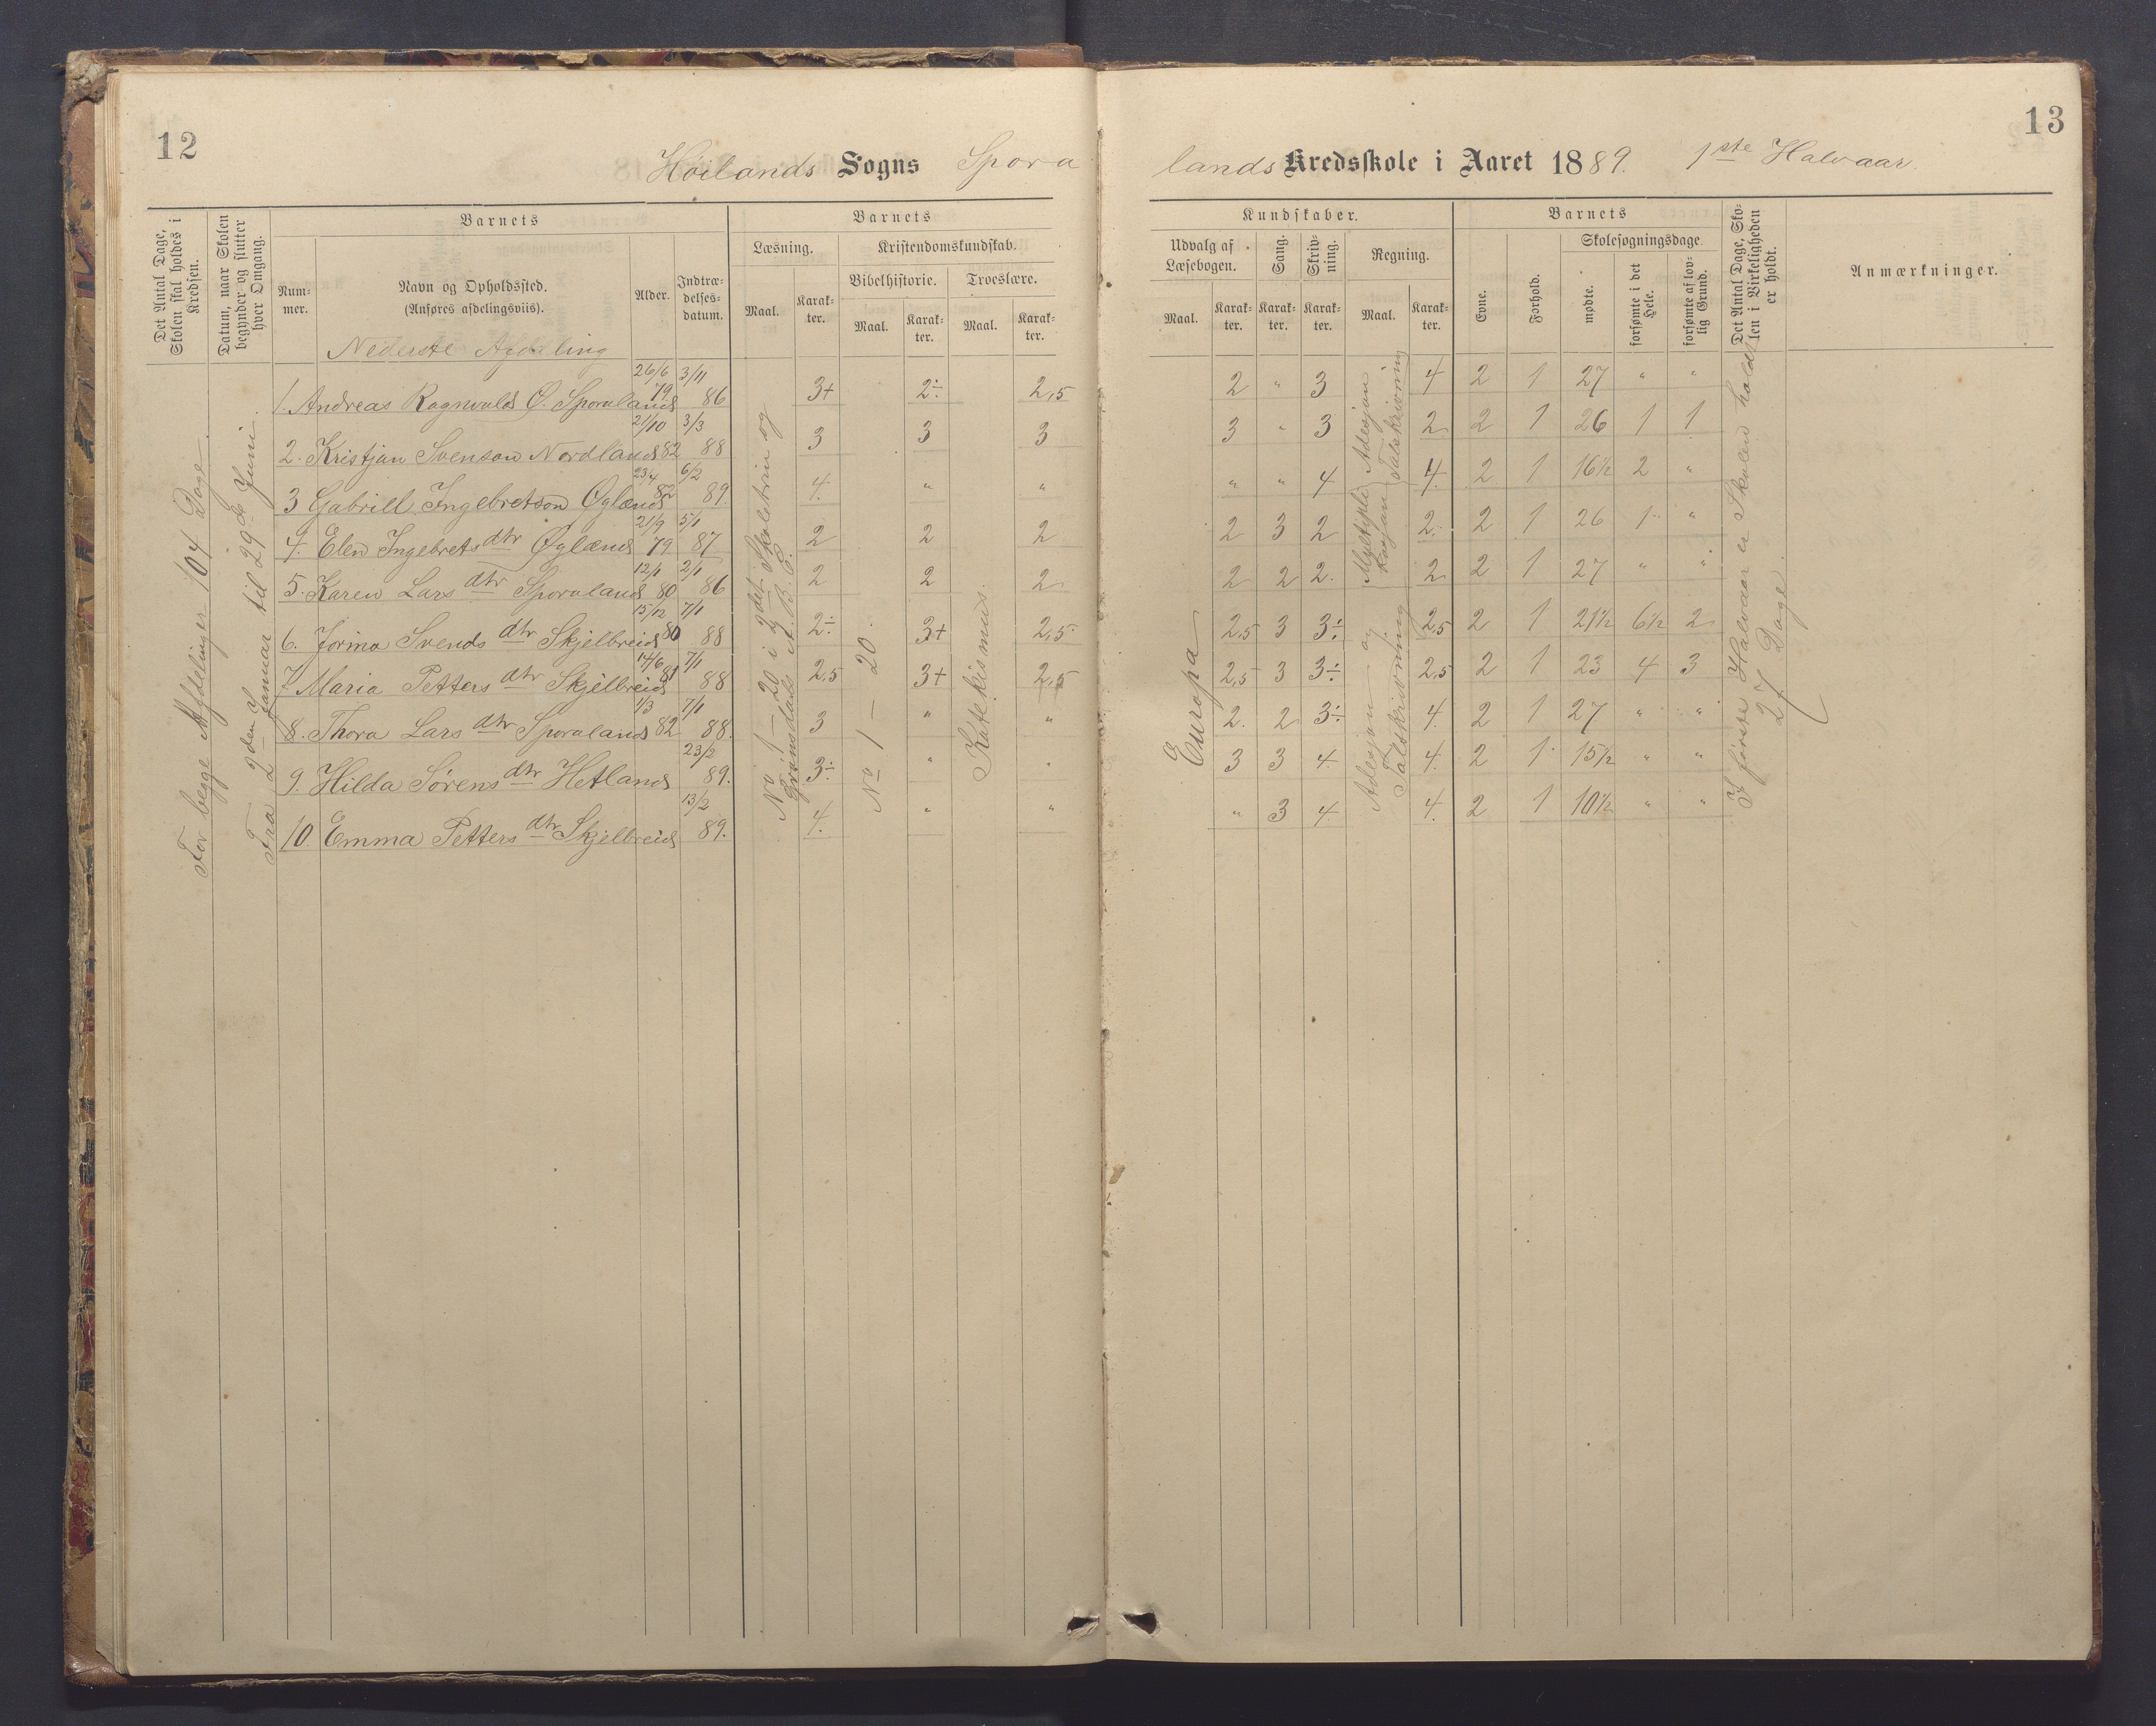 12
Hoilands Sogns Spora
Det Antal Dage, Skolen skal holdes i Kredsen.
Datum, naar Skolen begynder og slutter hver Omgang.
Barnets
Num-mer.
Navn og Opholdssted.
(Anføres afdelingsviis).
Alder.
Indtræ-delses-datum.
Barnets
Læsning.
Kristendomskundskab.
Bibelhistorie.
Troeslære.
Maal.
Karak-ter.
Maal.
Karak-ter.
Maal.
Karak-ter.
Nederste Afdeling
For begge Afdelinger 104 Dage.
Fra 2den Januar til 29de Juni.
1. Andreas Ragnvald Ø. Sporaland 26/6 79 3/11 86 3+ 2÷ 2,5
2. Kristjan Svenson Nordland 21/10 82 3/3 88 3 3 3
3 Gabriell Ingebretson Øglænd 23/4 82 6/2 89. 4. " "
4. Elen Ingebretsdtr Øglænd 21/9 79 5/1 87 2 2 2
5. Karen Larsdtr Sporaland 12/1 80 2/1 86 2 2 2
6. Jorina Svendsdtr Skjelbreid 15/12 80 7/1 88 2÷ 3+ 2,5
7. Maria Pettersdtr Skjelbreid 14/6 81 7/1 88 2,5 3+ 2,5
8. Thora Larsdtr Sporaland 1/3 82 7/1 88. 3 " "
9. Hilda Sørensdtr Hetland 23/2 89. 3÷ " "
10. Emma Pettersdtr Skjelbreid 13/2 89. 4. " "
No 1 – 20 i 2det Skoletrin og
Grønsdals A.B.C.
No 1 – 20.
Katekismus.
13
lands Kredsskole i Aaret 1889. 1ste Halvaar
Kundskaber.
Udvalg af Læsebogen.
Sang.
Skriv-ning.
Regning.
Maal.
Karak-ter.
Karak-ter.
Karak-ter.
Maal.
Karak-ter.
Barnets
Evne.
Forhold.
Skolesøgningsdage.
mødte.
forsømte i det Hele.
forsømte af lov-lig Grund.
Det Antal Dage, Sko-len i Virkeligheden er holdt.
Anmærkninger.
2 " 3 4 2 1 27 " "
3 " 3 2 2 1 26 1 1
" " 4 4. 2 1 16½ 2 "
2 3 2 2. 2 1 26 1 "
2 2 2. 2 2 1 27 " "
2,5 3 3÷ 2,5 2 1 21½ 6½ 2
2,5 3 3÷ 2,5 2 1 23 4 3
2. 2 3÷ 4. 2 1 27 " "
3 3 4. 4. 2 1 15½ " "
" 3 4. 4. 2 1 10½ " "
Europa
Adesjon
Talskrivning
Adesjon og
Talskrivning
I første Halvaar er Skolen holdt
27 Dage.